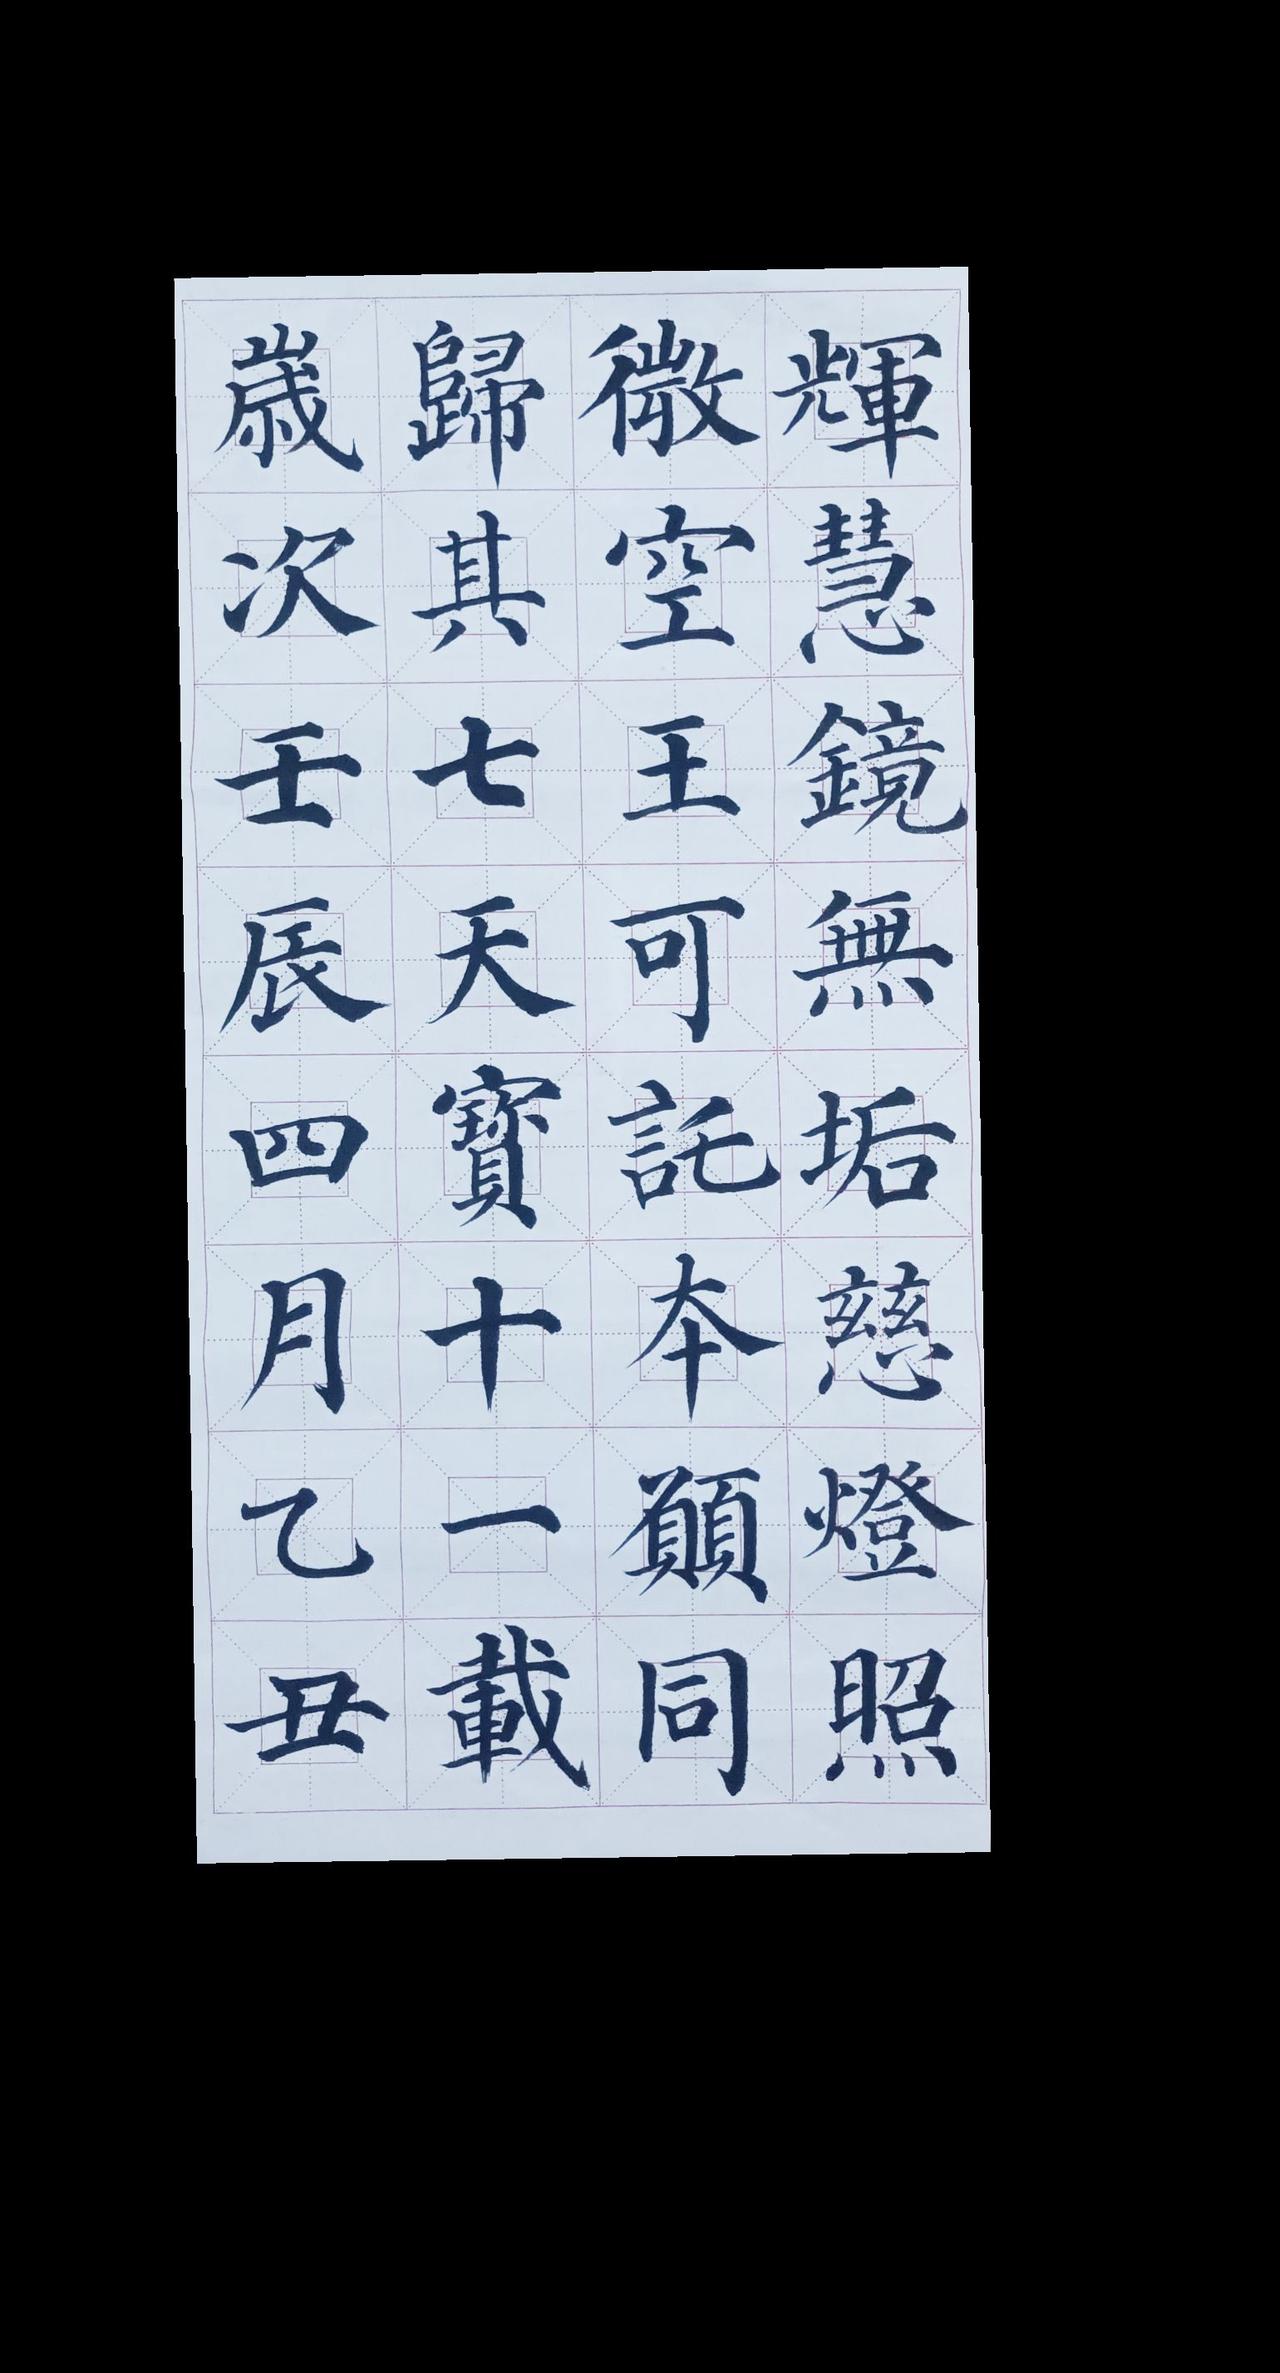 輝慧鏡無垢慈燈照
微空王可託本願同
歸其七天寶十一載
歲次壬辰四月乙丑